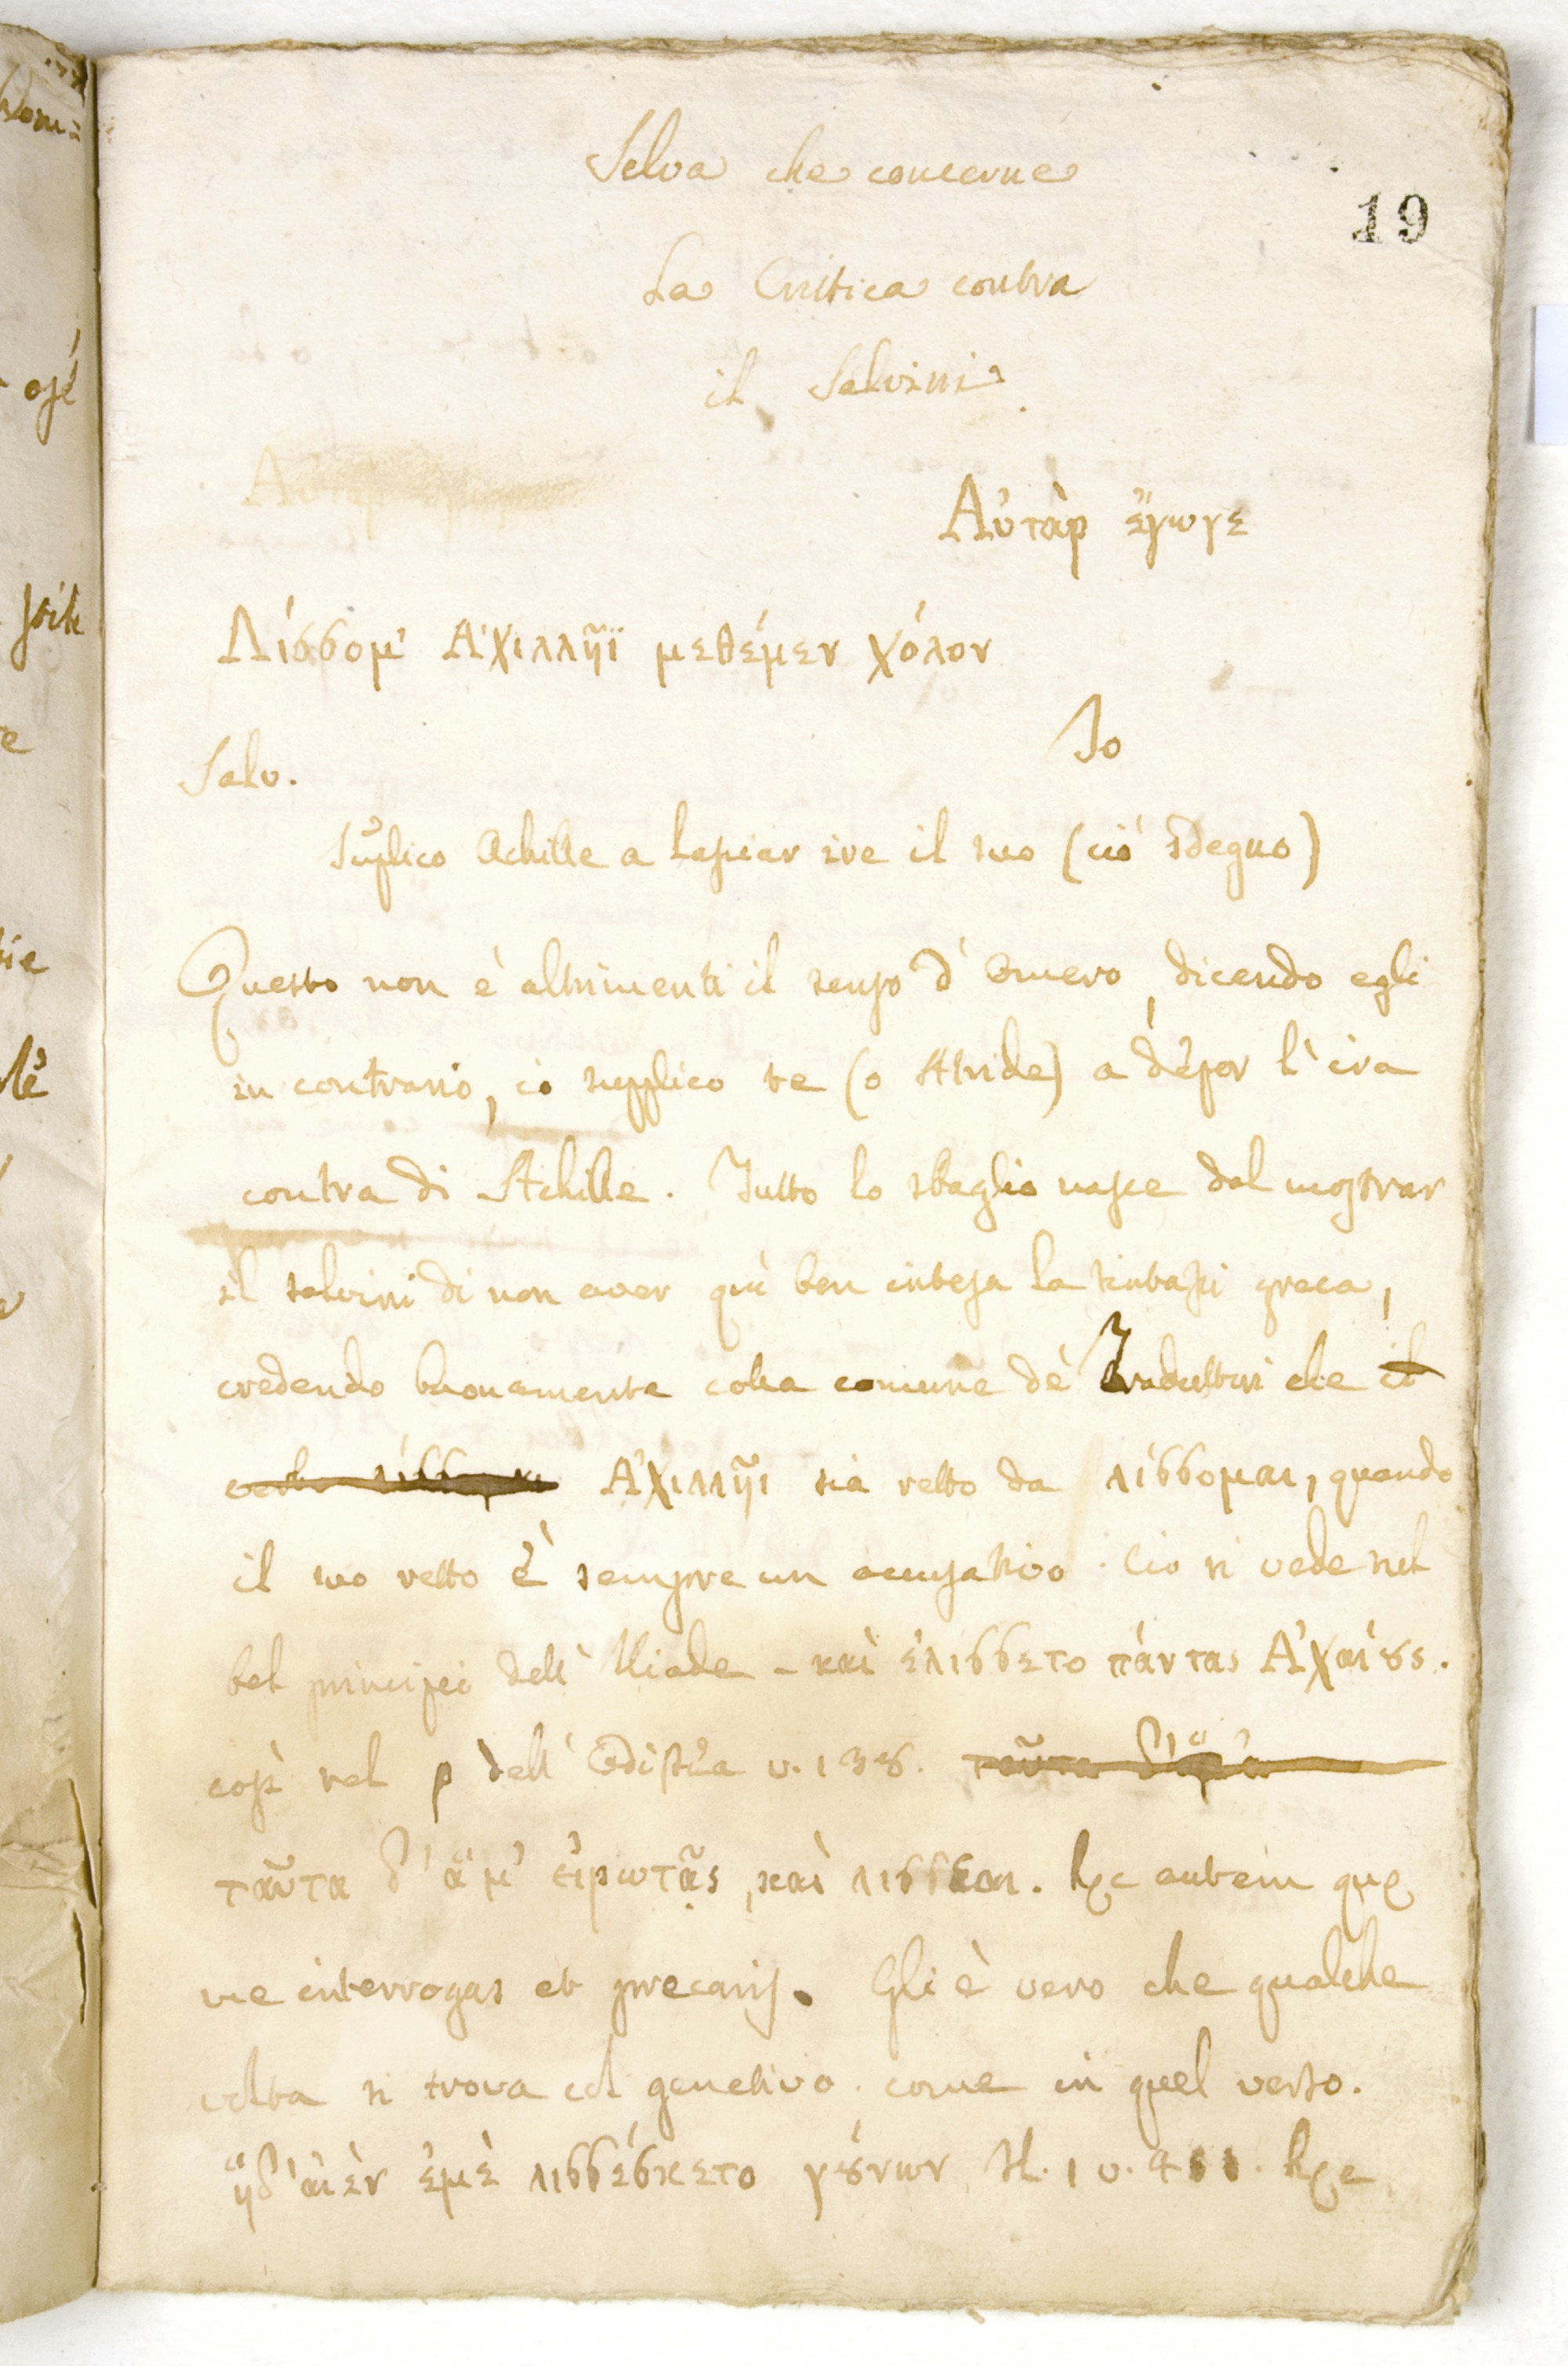 Selva che concerne
19
La Critica contra
il Salvini.
Αὐτὰρ ἔγωγε
Λίσσομ' Ἀχιλλῆϊ μεθέμεν χόλον
Io
Salv.
Suplico Achille a lasciar ire il suo (ciò sdegno)
Questo non è altrimenti il senso d'Omero, dicendo egli
in contrario, io supplico te (o Atride) a depor l'ira
contra di Achille. Tutto lo sbaglio nasce dal mostrar
il Salvini di non aver quì ben intesa la sintassi greca,
credendo buonamente colla comune de' Traduttori che il
Ἀχιλλῆι sia retto da λίσσομαι, quando
il suo retto è sempre un accusativo. Ciò si vede nel
bel principio dell'Iliade – καὶ ἐλισσετο πάντας Ἀχαιȣς.
così nel ρ dell'Odissea v. 138. ταῦτα δ' ἅ
ταῦτα δ' ἅ μ' εἰρωτᾷς, καὶ λισσεαι. hęc autem quę
me interrogas et precaris. Gli è vero che qualche
volta si trova col genetivo. come in quel verso.
ἥδ' αἰὲν ἐμὲ λισσέσκετο γȣ́νων Il. 1 v. 451. hęc